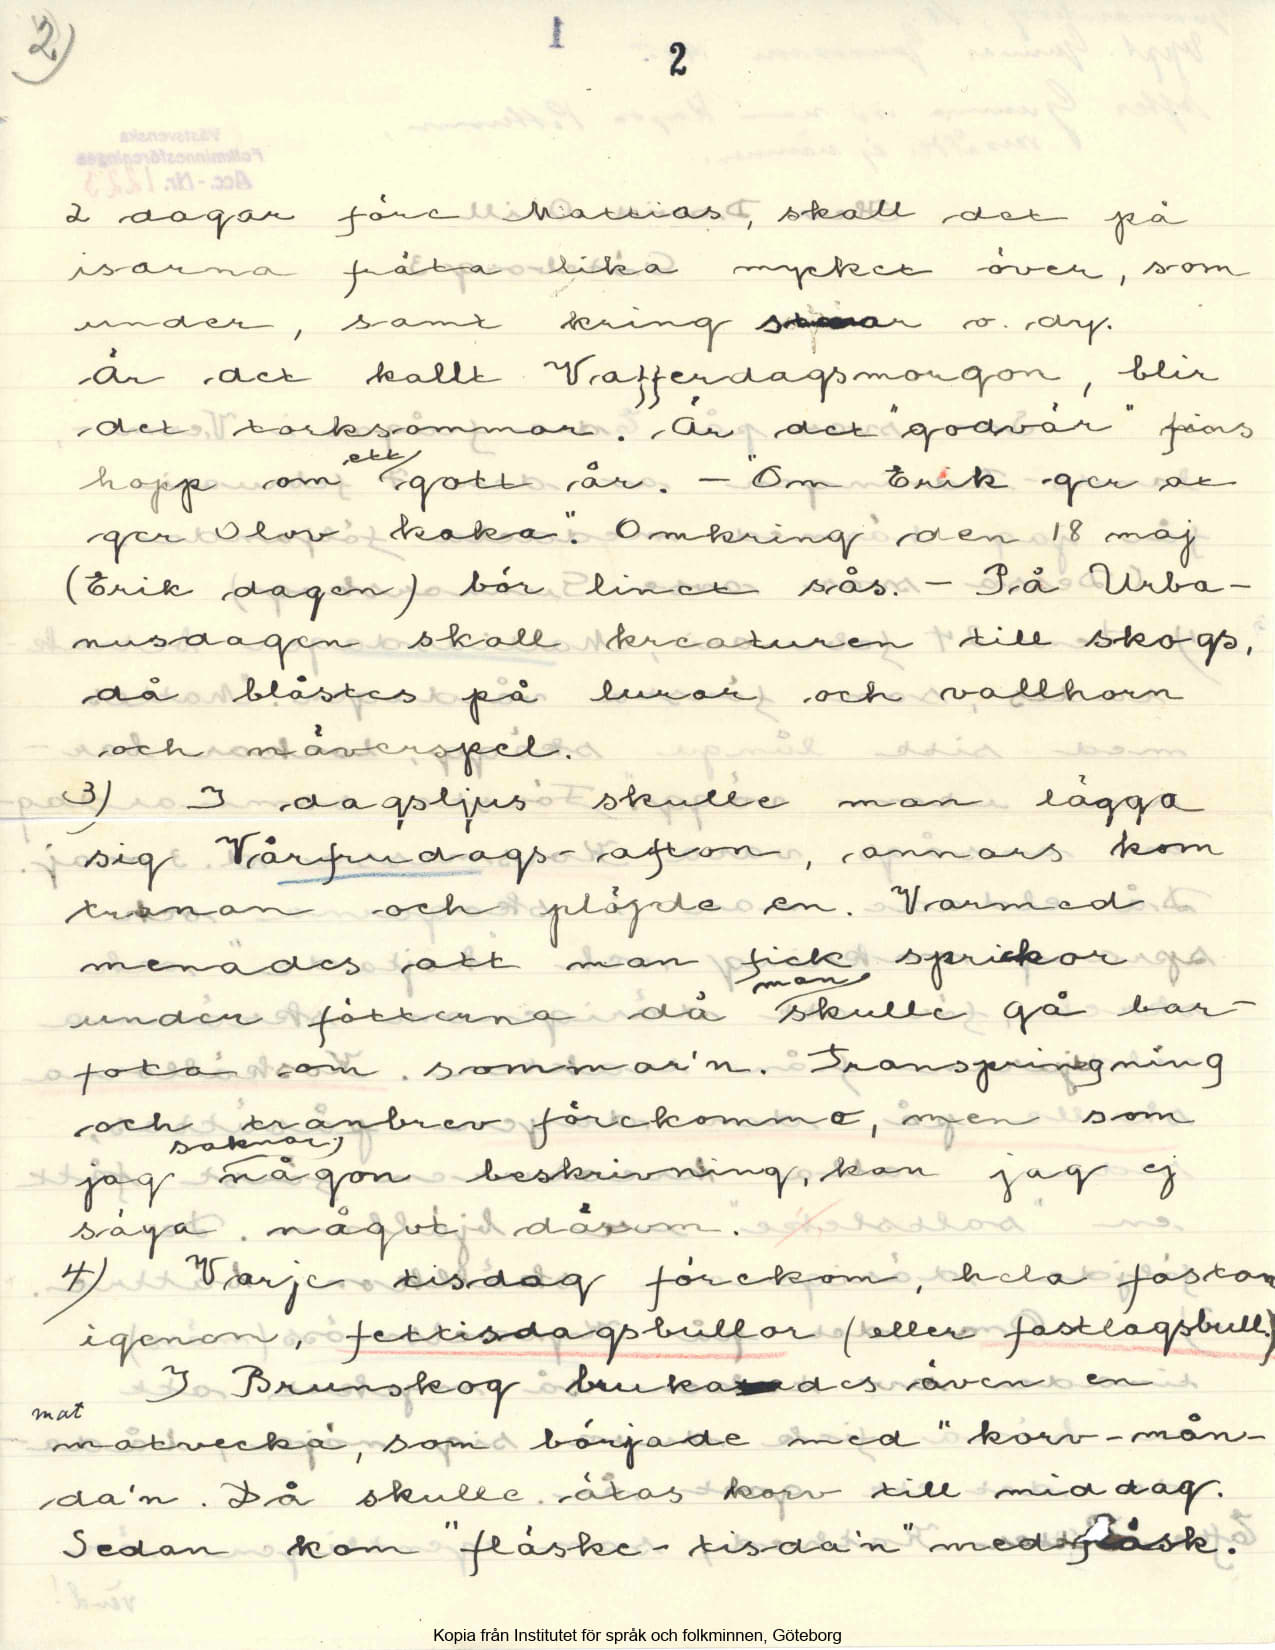 2)
1
2
2 dagar före Mattias, skall det på
isarna fräta lika mycket över, som
under, samt kring o. dy.
Är det kallt Vafferdagsmorgon, blir
det torksommar. Är det "godvär" fins
hopp om ett gott år. — "Om Erik ger ax
ger Olov kaka". Omkring den 18 maj
(Erik dagen) bör linet sås. — På Urba-
nusdagen skall kreaturen till skogs,
då blåstes på lurar och vallhorn
och näverspel.
3) I dagsljus skulle man lägga
sig Vårfrudags-afton, annars kom
tranan och plöjde en. Varmed
menades att man fick sprickor
under fötterna då man skulle gå bar-
fota om sommar'n. Transpringning
och tranbrev förekomme, men som
jag saknar någon beskrivning, kan jag ej
säga något därom.
4) Varje tisdag förekom, hela fastan
igenon, fettisdagsbullar (eller fastlagsbull.)
I Brunskog brukades även en
mat
matvecka, som började med "korv-mån-
da'n. Då skulle ätas korv till middag.
Sedan kom "fläske-tisda'n" med fläsk.
Kopia från Institutet för språk och folkminnen, Göteborg